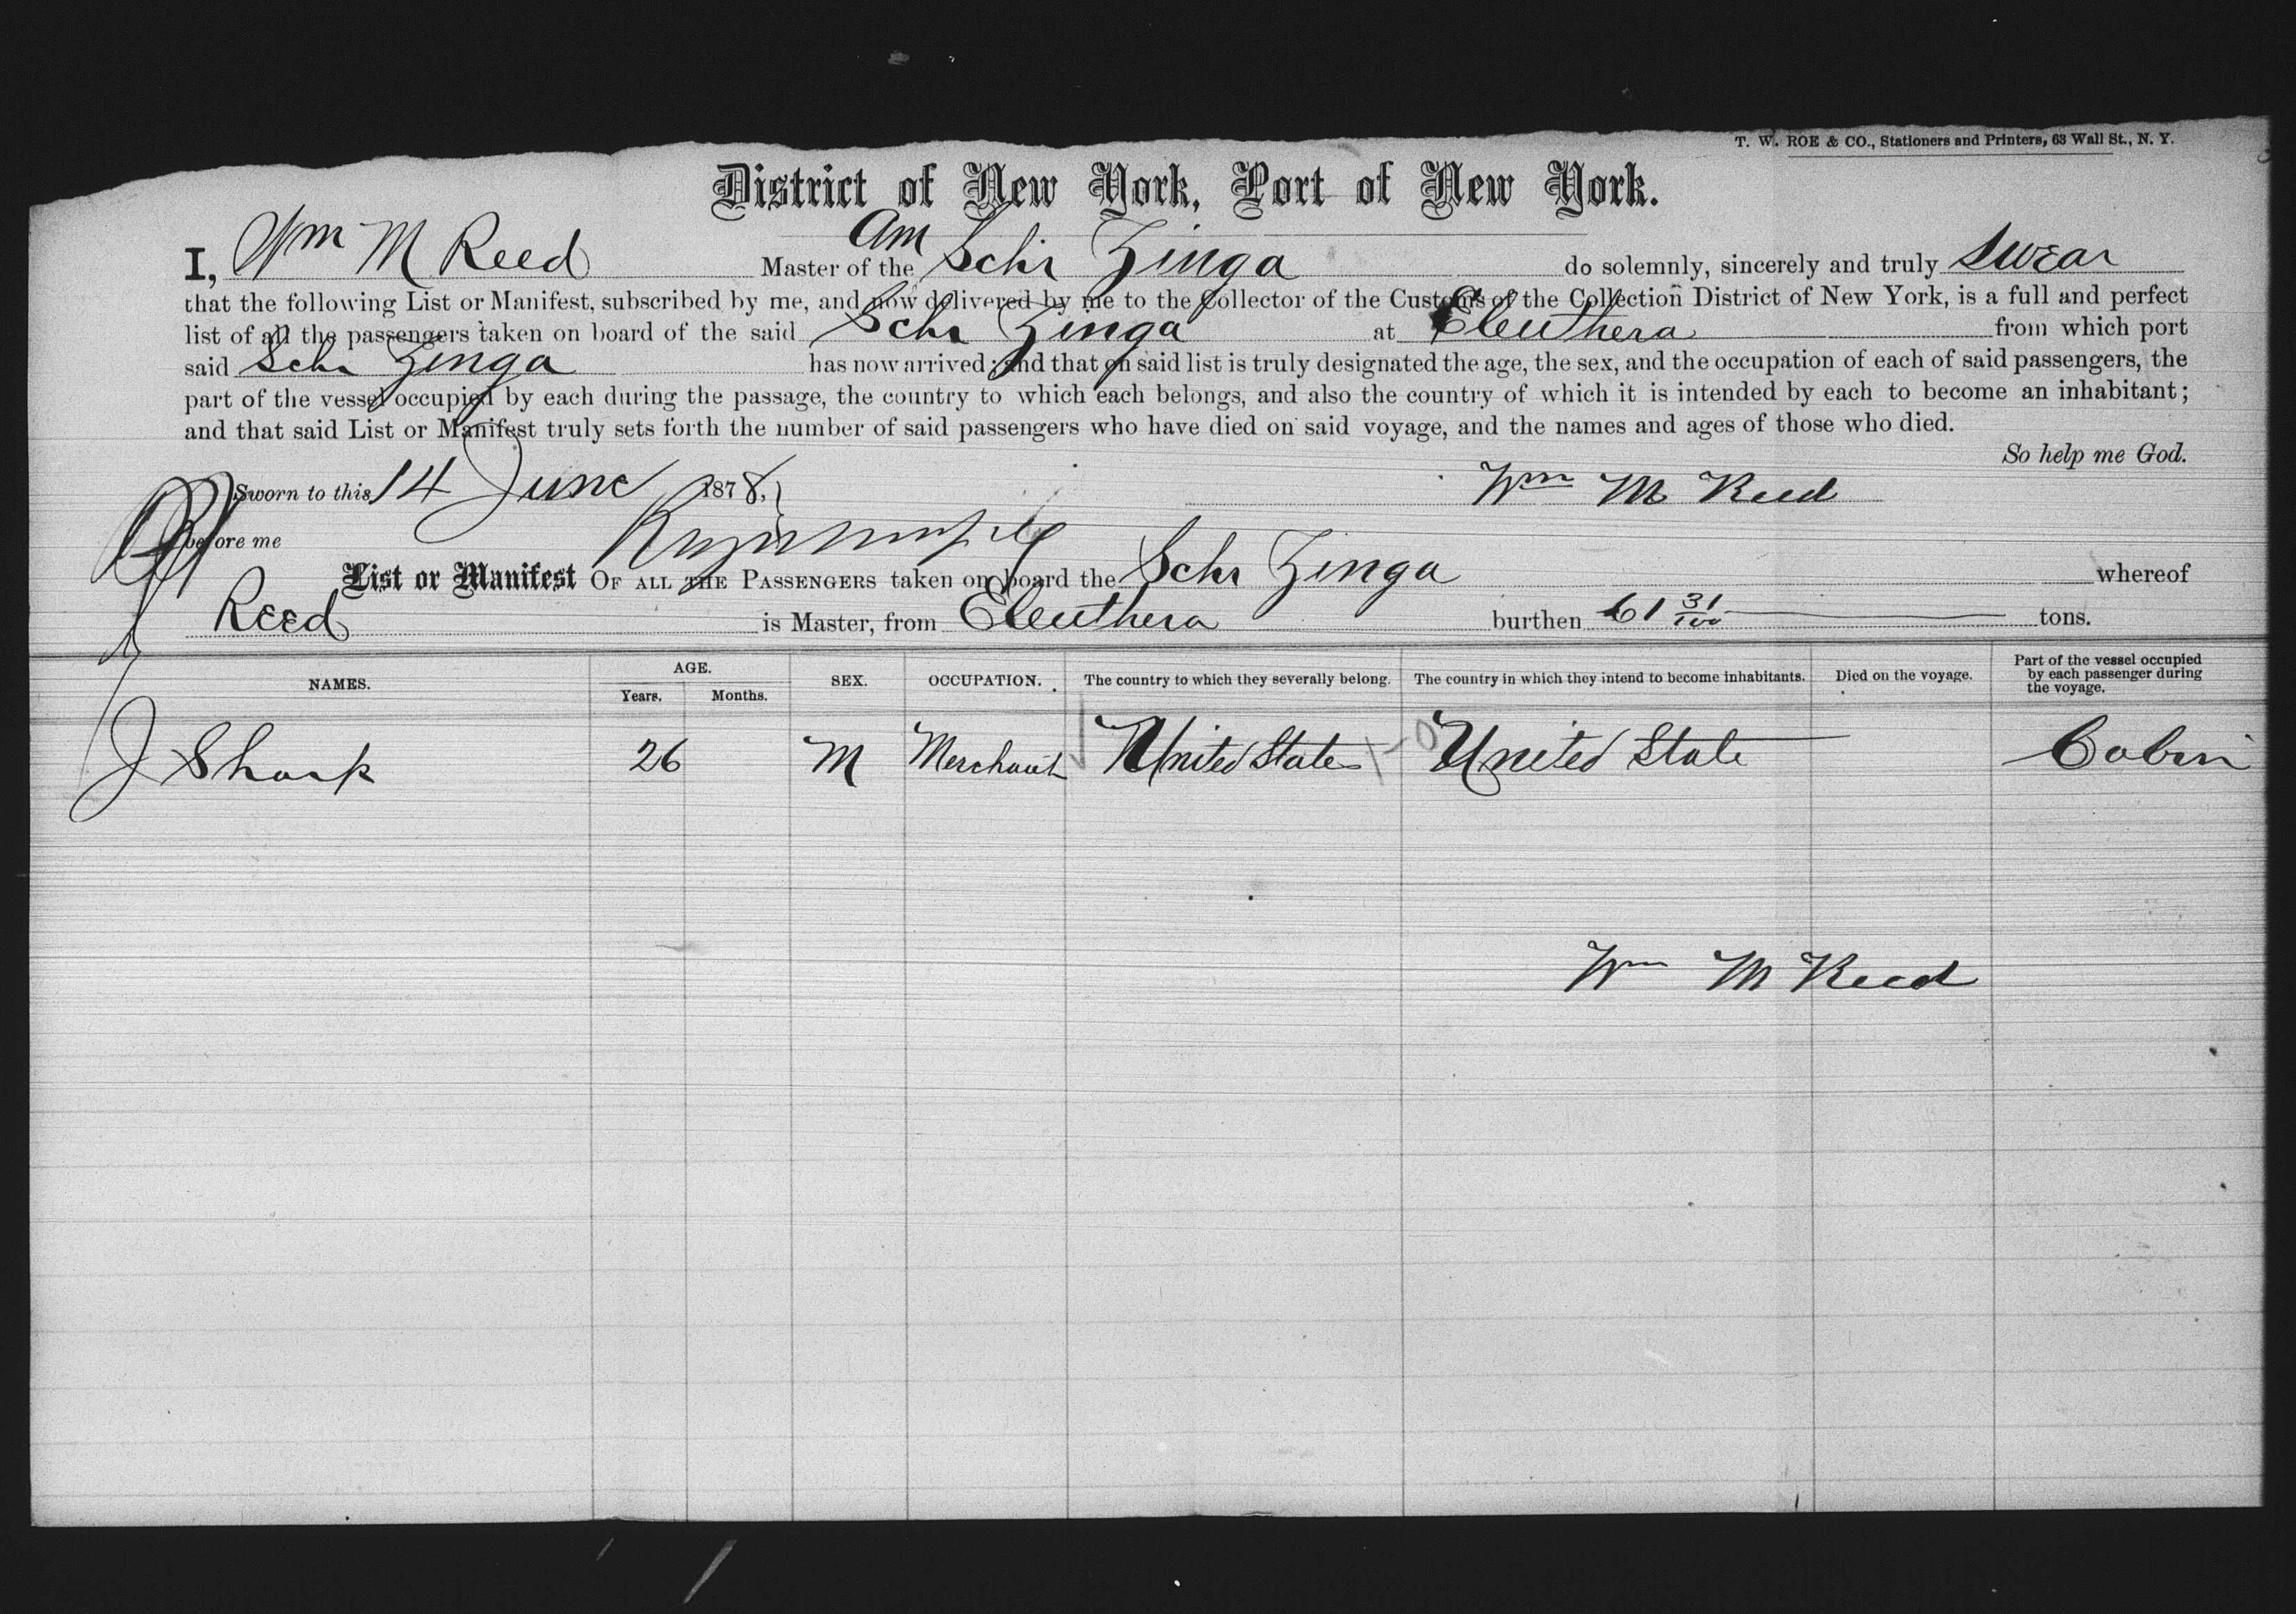 T. W. ROE & CO., Stationers and Printers, 63 Wall St., N. Y.
District of New York, Port of New York.
I, Wm M Reed Master of the Am Schr Zinga do solemnly, sincerely and truly swear
that the following List or Manifest, subscribed by me, and now delivered by me to the Collector of the Customs of the Collection District of New York, is a full and perfect
list of all the passengers taken on board of the said Schr Zinga at Eleuthera from which port
said Schr Zinga has now arrived; and that on said list is truly designated the age, the sex, and the occupation of each of said passengers, the
part of the vessel occupied by each during the passage, the country to which each belongs, and also the country of which it is intended by each to become an inhabitant;
and that said List or Manifest truly sets forth the number of said passengers who have died on said voyage, and the names and ages of those who died.
So help me God.
Sworn to this 14 June 1878, Wm M Reed
before me
List or Manifest OF ALL THE PASSENGERS taken on board the Schr Zinga whereof
Reed is Master, from Eleuthera burthen 61 31/100 tons.
NAMES. AGE. Years. Months. SEX. OCCUPATION. The country to which they severally belong. The country in which they intend to become inhabitants. Died on the voyage. Part of the vessel occupied by each passenger during the voyage.
J Shark 26 M Merchant United States United State Cabin
Wm M Reed